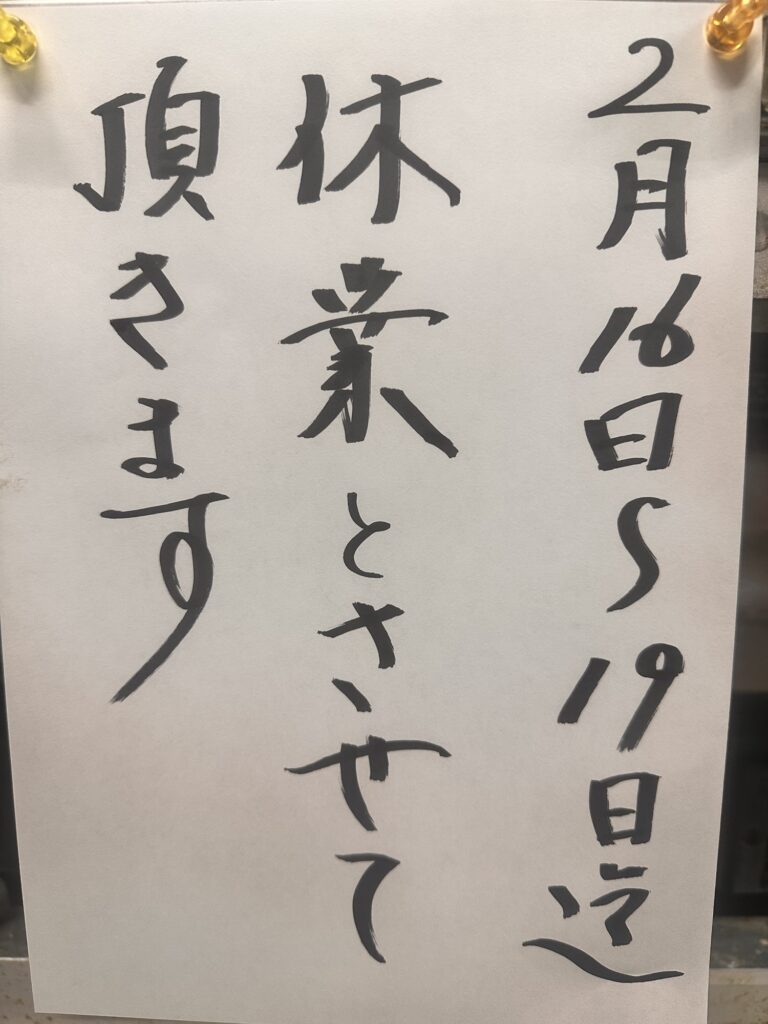 2月16日〜19日迄
休業とさせて
頂きます